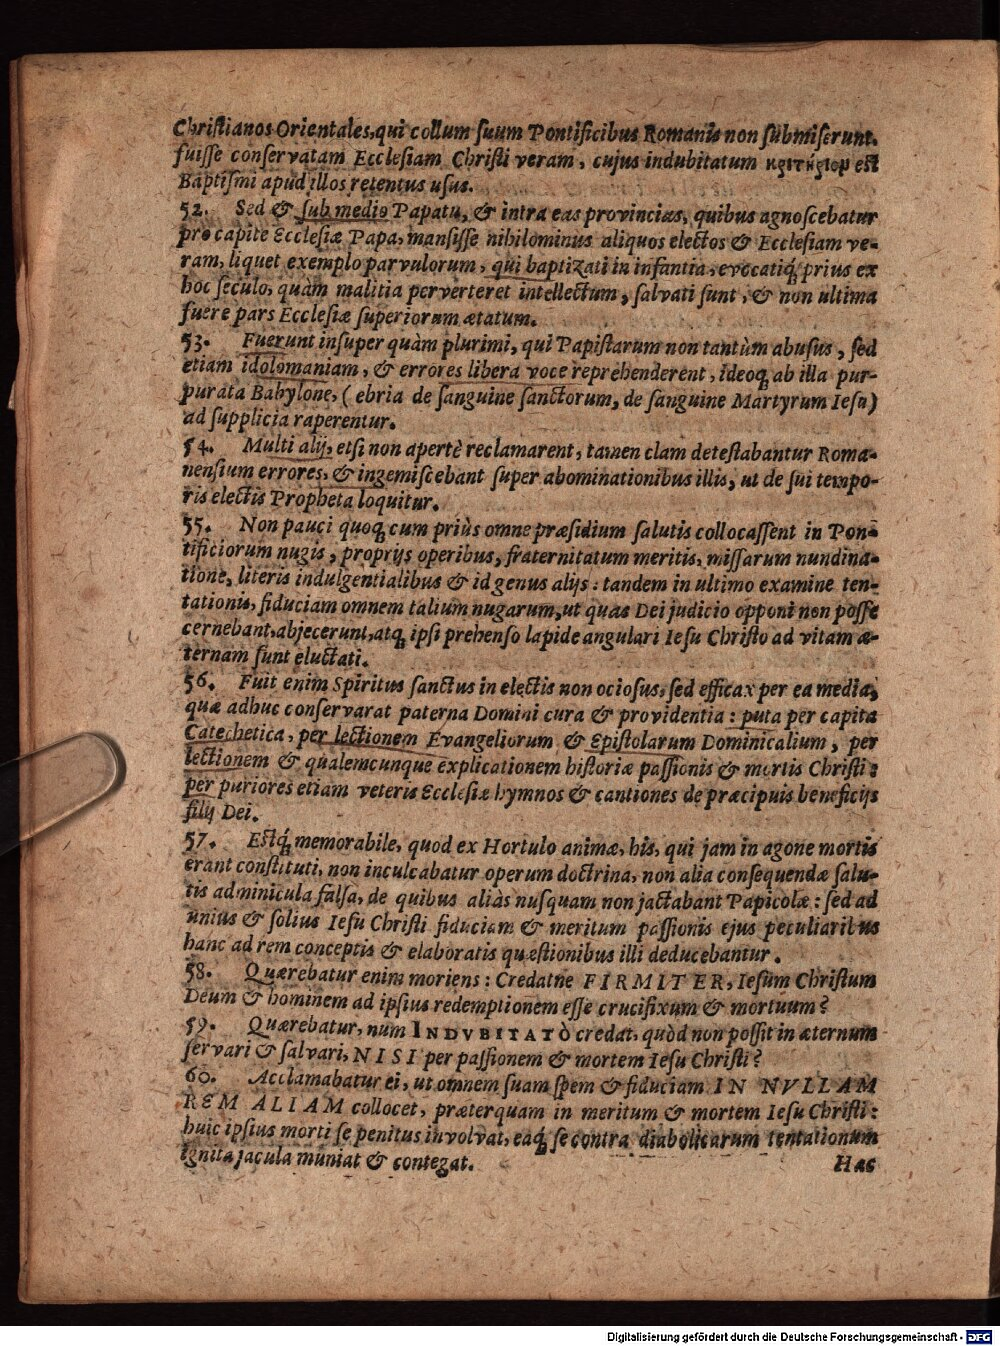 Christianos Orientales, qui collum suum Pontificibus Romanis non submiserunt,
fuisse conservatam Ecclesiam Christi veram, cujus indubitatum κριτήριον est
Baptismi apud illos retentus usus.
52. Sed & sub medio Papatu, & intra eas provincias, quibus agnoscebatur
pro capite Ecclesiæ Papa, mansisse nihilominus aliquos electos & Ecclesiam ve-
ram, liquet exemplo parvulorum, qui baptizati in infantia, evocatiq́; prius ex
hoc seculo, quàm malitia perverteret intellectum, salvati sunt, & non ultima
fuere pars Ecclesiæ superiorum ætatum.
53. Fuerunt insuper quàm plurimi, qui Papistarum non tantùm abusus, sed
etiam idolomaniam, & errores libera voce reprehenderent, ideoq; ab illa pur-
purata Babylone, (ebria de sanguine sanctorum, de sanguine Martyrum Iesu)
ad supplicia raperentur.
54. Multi alij, etsi non apertè reclamarent, tamen clam detestabantur Roma-
nensium errores, & ingemiscebant super abominationibus illis, ut de sui tempo-
ris electis Propheta loquitur.
55. Non pauci quoq; cum priùs omne præsidium salutis collocassent in Pon-
tificiorum nugis, proprijs operibus, fraternitatum meritis, missarum nundina-
tione, literis indulgentialibus & id genus alijs: tandem in ultimo examine ten-
tationis, fiduciam omnem talium nugarum, ut quas Dei judicio opponi non posse
cernebant, abjecerunt, atq; ipsi prehenso lapide angulari Iesu Christo ad vitam æ-
ternam sunt eluctati.
56. Fuit enim Spiritus sanctus in electis non ociosus, sed efficax per ea media,
quæ adhuc conservarat paterna Domini cura & providentia: puta per capita
Catechetica, per lectionem Evangeliorum & Epistolarum Dominicalium, per
lectionem & qualemcunque explicationem historiæ passionis & mortis Christi:
per puriores etiam veteris Ecclesiæ hymnos & cantiones de præcipuis beneficijs
filij Dei.
57. Estq́; memorabile, quod ex Hortulo animæ, his, qui jam in agone mortis
erant constituti, non inculcabatur operum doctrina, non alia consequendæ salu-
tis adminicula falsa, de quibus aliàs nusquam non jactabant Papicolæ: sed ad
unius & solius Iesu Christi fiduciam & meritum passionis ejus peculiaribus
hanc ad rem conceptis & elaboratis quæstionibus illi deducebantur.
58. Quærebatur enim moriens: Credatne FIRMITER, Iesum Christum
Deum & hominem ad ipsius redemptionem esse crucifixum & mortuum?
59. Quærebatur, num INDVBITATÒ credat, quòd non possit in æternum
servari & salvari, NISI per passionem & mortem Iesu Christi?
60. Acclamabatur ei, ut omnem suam spem & fiduciam IN NVLLAM
REM ALIAM collocet, præterquam in meritum & mortem Iesu Christi:
huic ipsius morti se penitus involvat, eaq́; se contra diabolicarum tentationum
ignita jacula muniat & contegat.
Hac
Digitalisierung gefördert durch die Deutsche Forschungsgemeinschaft - DFG